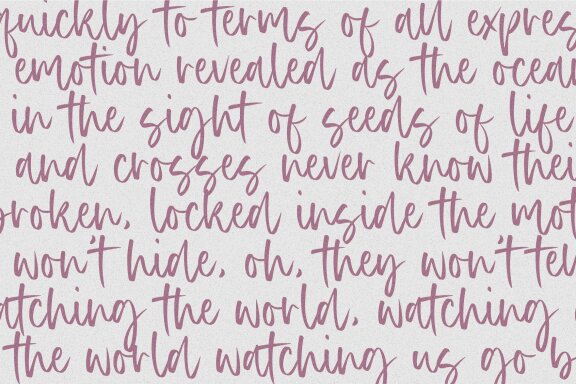 quickly to terms of all expres
emotion revealed as the ocean
in the sight of seeds of life
and crosses never know thei
broken, locked inside the mot
won't hide, oh, they won't tel
atching the world, watching
the world watching us go b